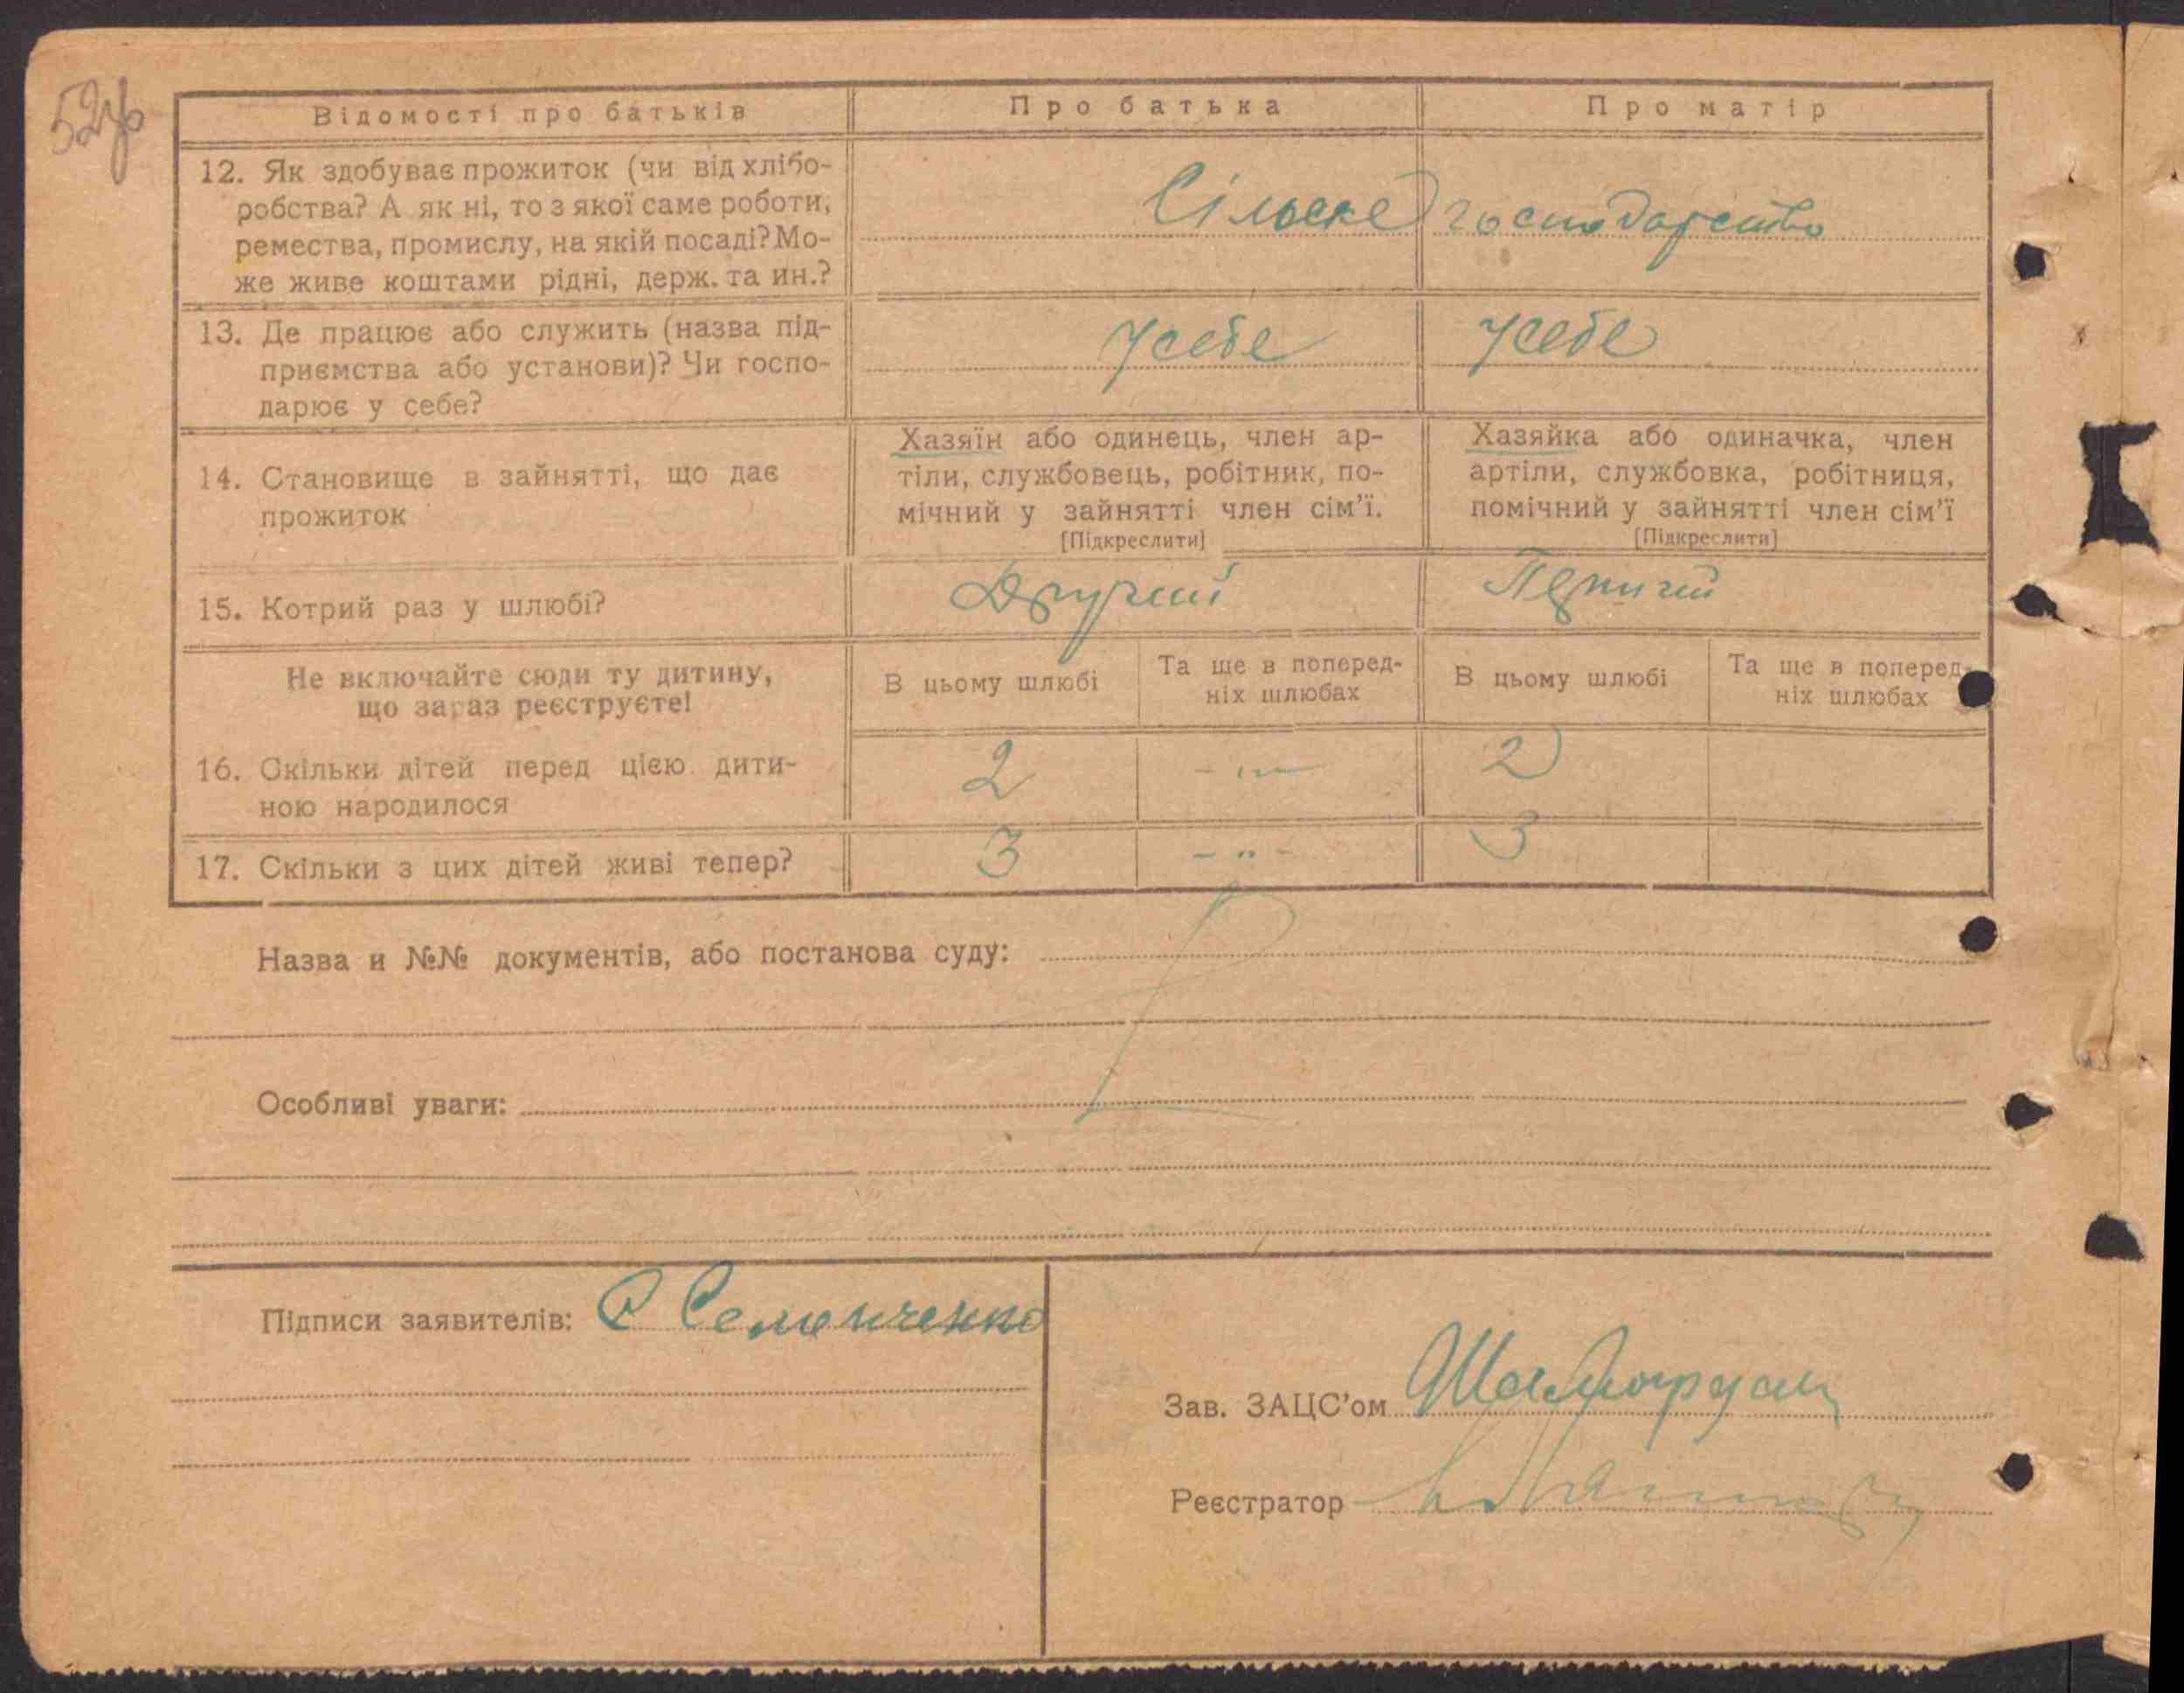 52зв
Відомості про батьків
Про батька
Про матір
12. Як здобуває прожиток (чи від хлібо-
робства? А як ні, то з якої саме роботи,
ремества, промислу, на якій посаді? Мо-
же живе коштами рідні, держ. та ин.?
Сільске господарство
13. Де працює або служить (назва під-
приємства або установи)? Чи госпо-
дарює у себе?
У себе
У себе
14. Становище в зайнятті, що дає
прожиток
Хазяїн або одинець, член ар-
тіли, службовець, робітник, по-
мічний у зайнятті член сім'ї.
[Підкреслити]
Хазяйка або одиначка, член
артіли, службовка, робітниця,
помічний у зайнятті член сім'ї
[Підкреслити]
15. Котрий раз у шлюбі?
Другий
Не включайте сюди ту дитину,
що зараз реєструєте!
В цьому шлюбі
Та ще в поперед-
ніх шлюбах
В цьому шлюбі
Та ще в поперед-
ніх шлюбах
16. Скільки дітей перед цією дити-
ною народилося
2
- " -
2
17. Скільки з цих дітей живі тепер?
3
- " -
3
Назва и №№ документів, або постанова суду:
Особливі уваги:
Підписи заявителів: С Семенченко
Зав. ЗАЦС'ом
Реєстратор